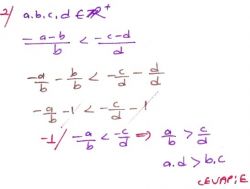 2/ a.b.c.d ∈ ℝ⁺
(-a-b)/b < (-c-d)/d
-a/b - b/b < -c/d - d/d
-a/b - 1 < -c/d - 1
-1/ -a/b < -c/d ⇒ a/b > c/d
a.d > b.c
CEVAP: E